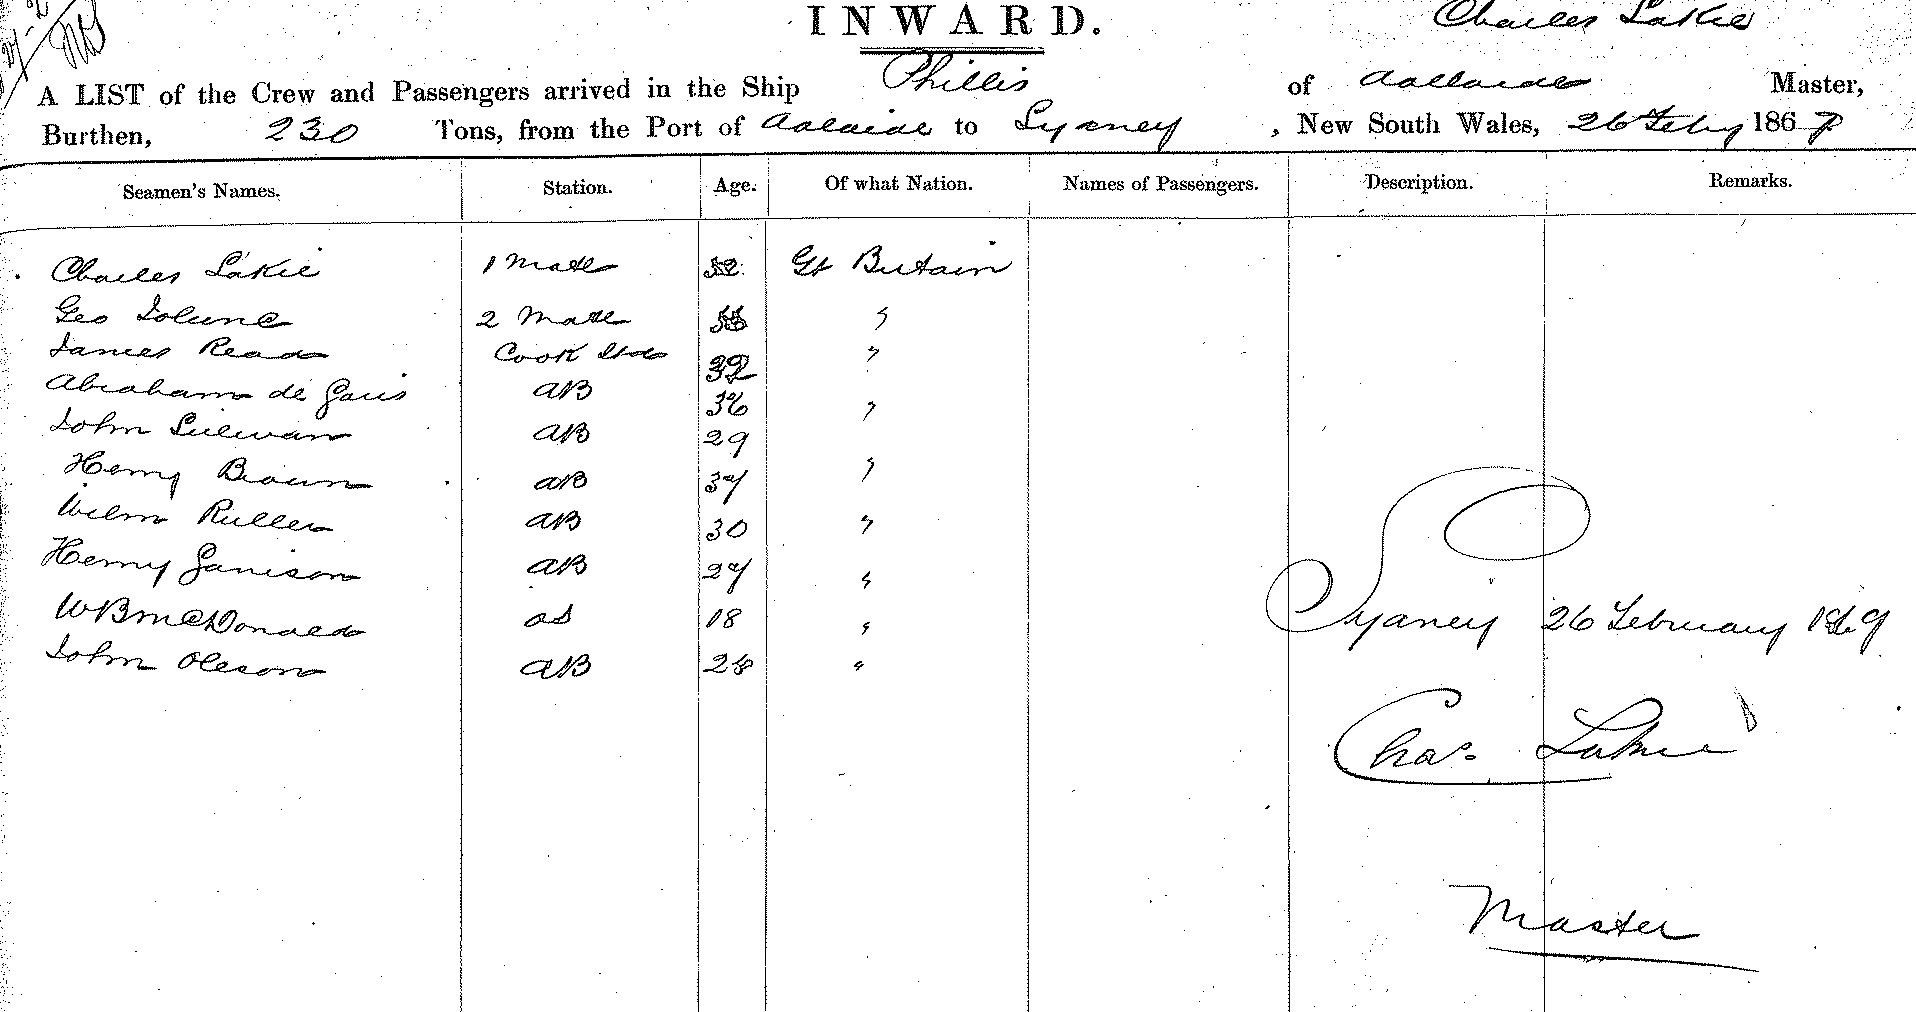 INWARD.
Charles Lakie
A LIST of the Crew and Passengers arrived in the Ship Phillis of Adelaide Master,
Burthen, 230 Tons, from the Port of Adelaide to Sydney, New South Wales, 26 Feby 186
Seamen's Names. Station. Age. Of what Nation. Names of Passengers. Description. Remarks.
Charles Lakie 1 Mate 32 Gt Britain
Geo 2 Mate "
James Read Cook Std 32 "
Abraham de Garis AB 36 "
John Sullivan AB 29
Henry Brown AB 37 "
Willm AB 30 "
Henry AB 27 "
W B McDonald OS 18 "
John Oleson AB "
Sydney 26 February 1869
Chas Lakie
Master